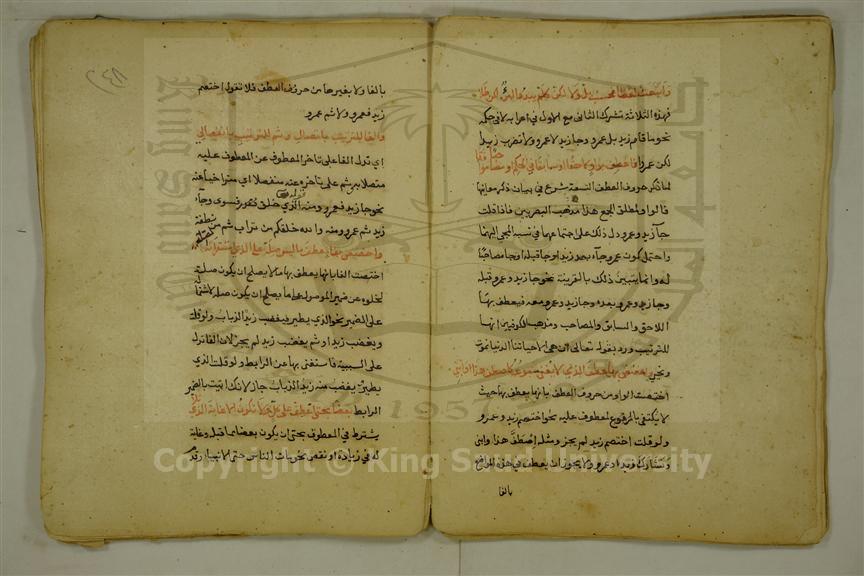 وأتبعت لفظا فحسب بل ولا لكن كلم يبد امرؤ لكن طلا
فهذه الثلاثة تشرك الثاني مع الاول في اعرابه لا في حكمه
نحو ما قام زيد بل عمرو وجا زيد لا عمرو ولا تضرب زيدا
لكن عمرا فاعطف بواو لاحقا او سابقا في الحكم او مصاحبا موافقا
لما ذكر حروف العطف التسعة شرع في بيان ذكر معانيها
فالواو لمطلق الجمع هذا مذهب البصريين فاذا قلت
جآ زيد وعمرو دل ذلك على اجتماعهما في نسبة المجي اليهما
واحتمل كون عمرو جآء بعد زيد او جا قبله او جا مصاحبا
له وانما يتبين ذلك بالقرينة نحو جا زيد وعمرو قبله
وجا زيد وعمرو بعده وجا زيد وعمرو معه فيعطف بها
اللاحق والسابق والمصاحب ومذهب الكوفيين انها
للترتيب ورد بقوله تعالى ان هي الا حياتنا الدنيا نموت
ونحيى واخصص بها عطف الذي لا يغني متبوعه كاصطف هذا وابني
اختصت الواو من حروف العطف بانها يعطف بها حيث
لا يكتفي بالمعطوف عليه نحو اختصم زيد وعمرو
ولو قلت اختصم زيد لم يجز ومثله اصطف هذا وابني
وتشارك زيد وعمرو ولا يجوز ان يعطف في هذه المواضع
بالفا
بالفا ولا بغيرها من حروف العطف فلا تقول اختصم
زيد فعمرو ولا ثم عمرو
والفا للترتيب باتصال وثم للترتيب بانفصال
اي تدل الفا على تاخر المعطوف عن المعطوف عليه
متصلا به وثم على تاخره عنه منفصلا اي متراخيا عنه
نحو جا زيد فعمرو ومنه الذي خلق فسوى وجآء
زيد ثم عمرو ومنه والله خلقكم من تراب ثم من نطفة
واخصص بفاء عطف ما ليس صلة على الذي استقر انه الصلة
اختصت الفا بانها يعطف بها ما لا يصلح ان يكون صلة
لخلوه عن ضمير الموصول على ما يصلح ان يكون صلة لاشتماله
على الضمير نحو الذي يطير فيغضب زيد الذباب ولو قلت
ويغضب زيد او ثم يغضب زيد لم يجز لان الفا تدل
على السببية فاستغنى بها عن الرابط ولو قلت الذي
يطير ويغضب منه زيد الذباب جاز لانك اتيت بالضمير
الرابط بعضا بحتى اعطف على كل ولا يكون الا غاية الذي تلا
يشترط في المعطوف بحتى ان يكون بعضا مما قبله وغاية
له في زيادة او نقص نحو مات الناس حتى الانبيا وقدم
Copyright © King Saud University
1957